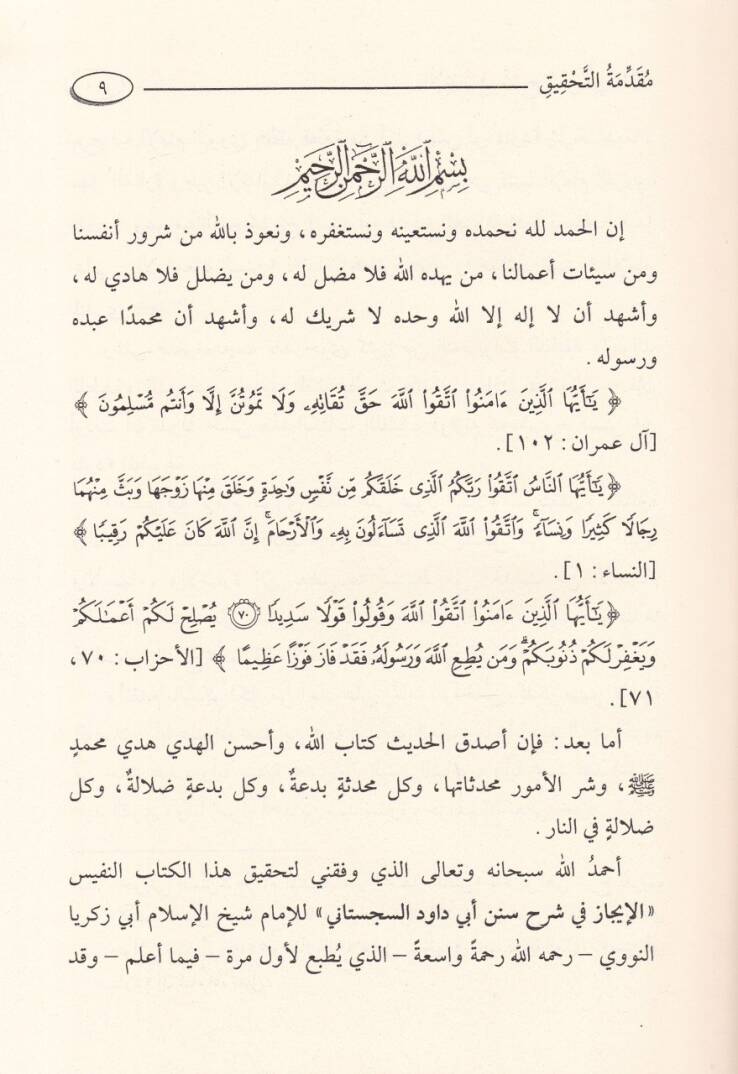 مُقَدِّمَةُ التَّحْقِيقِ ٩
بِسْمِ ٱللَّهِ ٱلرَّحْمَٰنِ ٱلرَّحِيمِ
إن الحمد لله نحمده ونستعينه ونستغفره، ونعوذ بالله من شرور أنفسنا
ومن سيئات أعمالنا، من يهده الله فلا مضل له، ومن يضلل فلا هادي له،
وأشهد أن لا إله إلا الله وحده لا شريك له، وأشهد أن محمدًا عبده
ورسوله.
﴿ يَٰٓأَيُّهَا ٱلَّذِينَ ءَامَنُوا۟ ٱتَّقُوا۟ ٱللَّهَ حَقَّ تُقَاتِهِۦ وَلَا تَمُوتُنَّ إِلَّا وَأَنتُم مُّسْلِمُونَ ﴾
[آل عمران: ١٠٢].
﴿ يَٰٓأَيُّهَا ٱلنَّاسُ ٱتَّقُوا۟ رَبَّكُمُ ٱلَّذِى خَلَقَكُم مِّن نَّفْسٍ وَٰحِدَةٍ وَخَلَقَ مِنْهَا زَوْجَهَا وَبَثَّ مِنْهُمَا
رِجَالًا كَثِيرًا وَنِسَآءً ۚ وَٱتَّقُوا۟ ٱللَّهَ ٱلَّذِى تَسَآءَلُونَ بِهِۦ وَٱلْأَرْحَامَ ۚ إِنَّ ٱللَّهَ كَانَ عَلَيْكُمْ رَقِيبًا ﴾
[النساء: ١].
﴿ يَٰٓأَيُّهَا ٱلَّذِينَ ءَامَنُوا۟ ٱتَّقُوا۟ ٱللَّهَ وَقُولُوا۟ قَوْلًا سَدِيدًا ٧٠ يُصْلِحْ لَكُمْ أَعْمَٰلَكُمْ
وَيَغْفِرْ لَكُمْ ذُنُوبَكُمْ ۗ وَمَن يُطِعِ ٱللَّهَ وَرَسُولَهُۥ فَقَدْ فَازَ فَوْزًا عَظِيمًا ﴾ [الأحزاب: ٧٠،
٧١].
أما بعد: فإن أصدق الحديث كتاب الله، وأحسن الهدي هدي محمدٍ
ﷺ، وشر الأمور محدثاتها، وكل محدثةٍ بدعةٌ، وكل بدعةٍ ضلالةٌ، وكل
ضلالةٍ في النار.
أحمدُ الله سبحانه وتعالى الذي وفقني لتحقيق هذا الكتاب النفيس
«الإيجاز في شرح سنن أبي داود السجستاني» للإمام شيخ الإسلام أبي زكريا
النووي – رحمه الله رحمةً واسعةً – الذي يُطبع لأول مرة – فيما أعلم – وقد